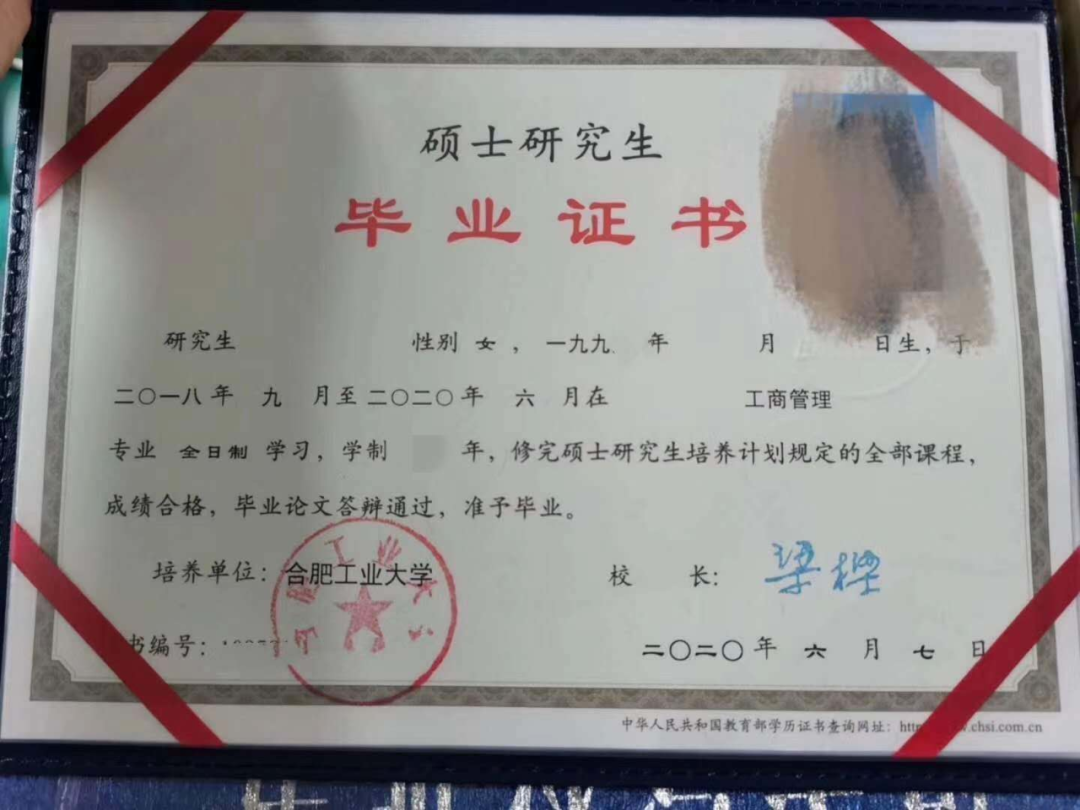 硕士研究生
毕业证书
研究生 性别 女 ， 一九九 年 月 日生，于
二〇一八年 九 月至二〇二〇年 六 月在 工商管理
专业 全日制 学习，学制 年，修完硕士研究生培养计划规定的全部课程，
成绩合格，毕业论文答辩通过，准予毕业。
培养单位：合肥工业大学 校 长：梁樑
书编号：
二〇二〇年 六 月 七 日
中华人民共和国教育部学历证书查询网址：http .chsi.com.cn